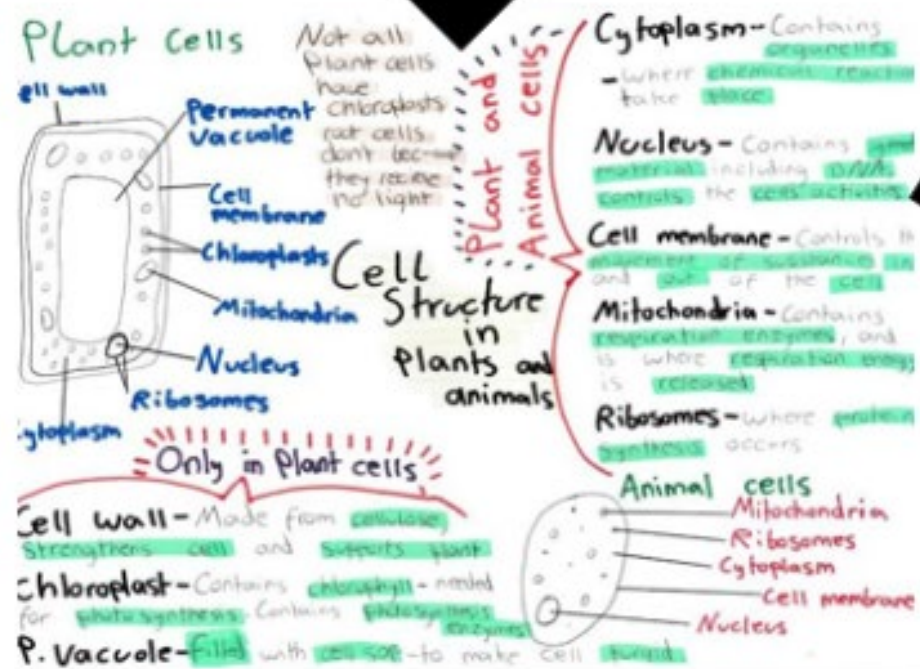 Plant Cells
ell wall
Permanent
Vacuole
Cell
membrane
Chloroplasts
Mitochondria
Nucleus
Ribosomes
ytoplasm
Not all
Plant cells
have
chloroplasts
cells
they
no light
Cell
Structure
in
Plants and
animals
Plant and
Animal cells
Cytoplasm - Contains
organelles
- where chemical reactio
take place
Nucleus - Contains
material including DNA
controls the cells activities
Cell membrane - Controls th
movement of substance in
and out of the cell
Mitochondria - Contains
respiration enzymes, and
is where respiration energy
is released
Ribosomes - where protein
synthesis occurs
Only in Plant cells
Cell wall - Made from cellulose,
Strengthens cell and Supports plant
Chloroplast - Contains chlorophyll - needed
for photosynthesis. Contains photosynthesis
enzymes
P. Vacuole - Filled with cell sap - to make cell turgid
Animal cells
Mitochondria
Ribosomes
Cytoplasm
Cell membrane
Nucleus